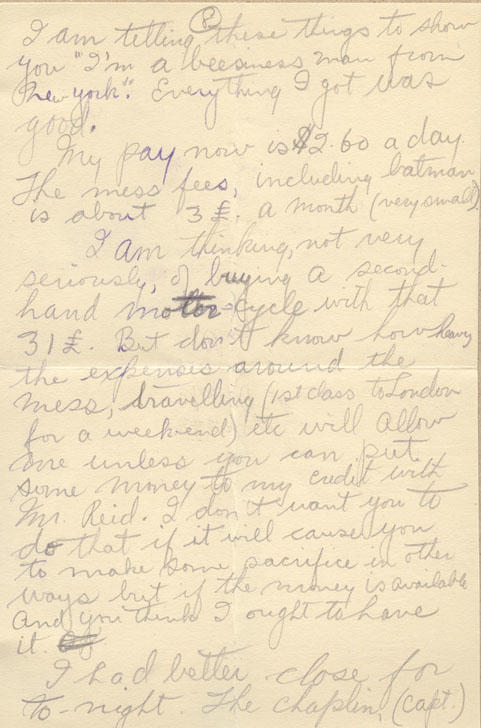 8
I am telling these things to show
you "I'm a beesiness man from
new york". Everything I got was
good.
My pay now is $2.60 a day.
The mess fees, including batman
is about 3£. a month (very small).
I am thinking, not very
seriously, of buying a second-
hand motor-cycle with that
31£. But don't know how heavy
the expenses around the
mess, travelling (1st class to London
for a weekend) etc will allow
me unless you can put
some money to my credit with
Mr. Reid. I don't want you to
do that if it will cause you
to make some sacrifice in other
ways but if the money is available
and you think I ought to have
it.
I had better close for
to-night. The chaplin, (capt.)